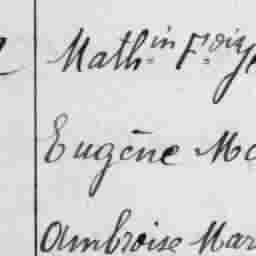 Math.in F.ois
Eugène Ma
Ambroise Mar